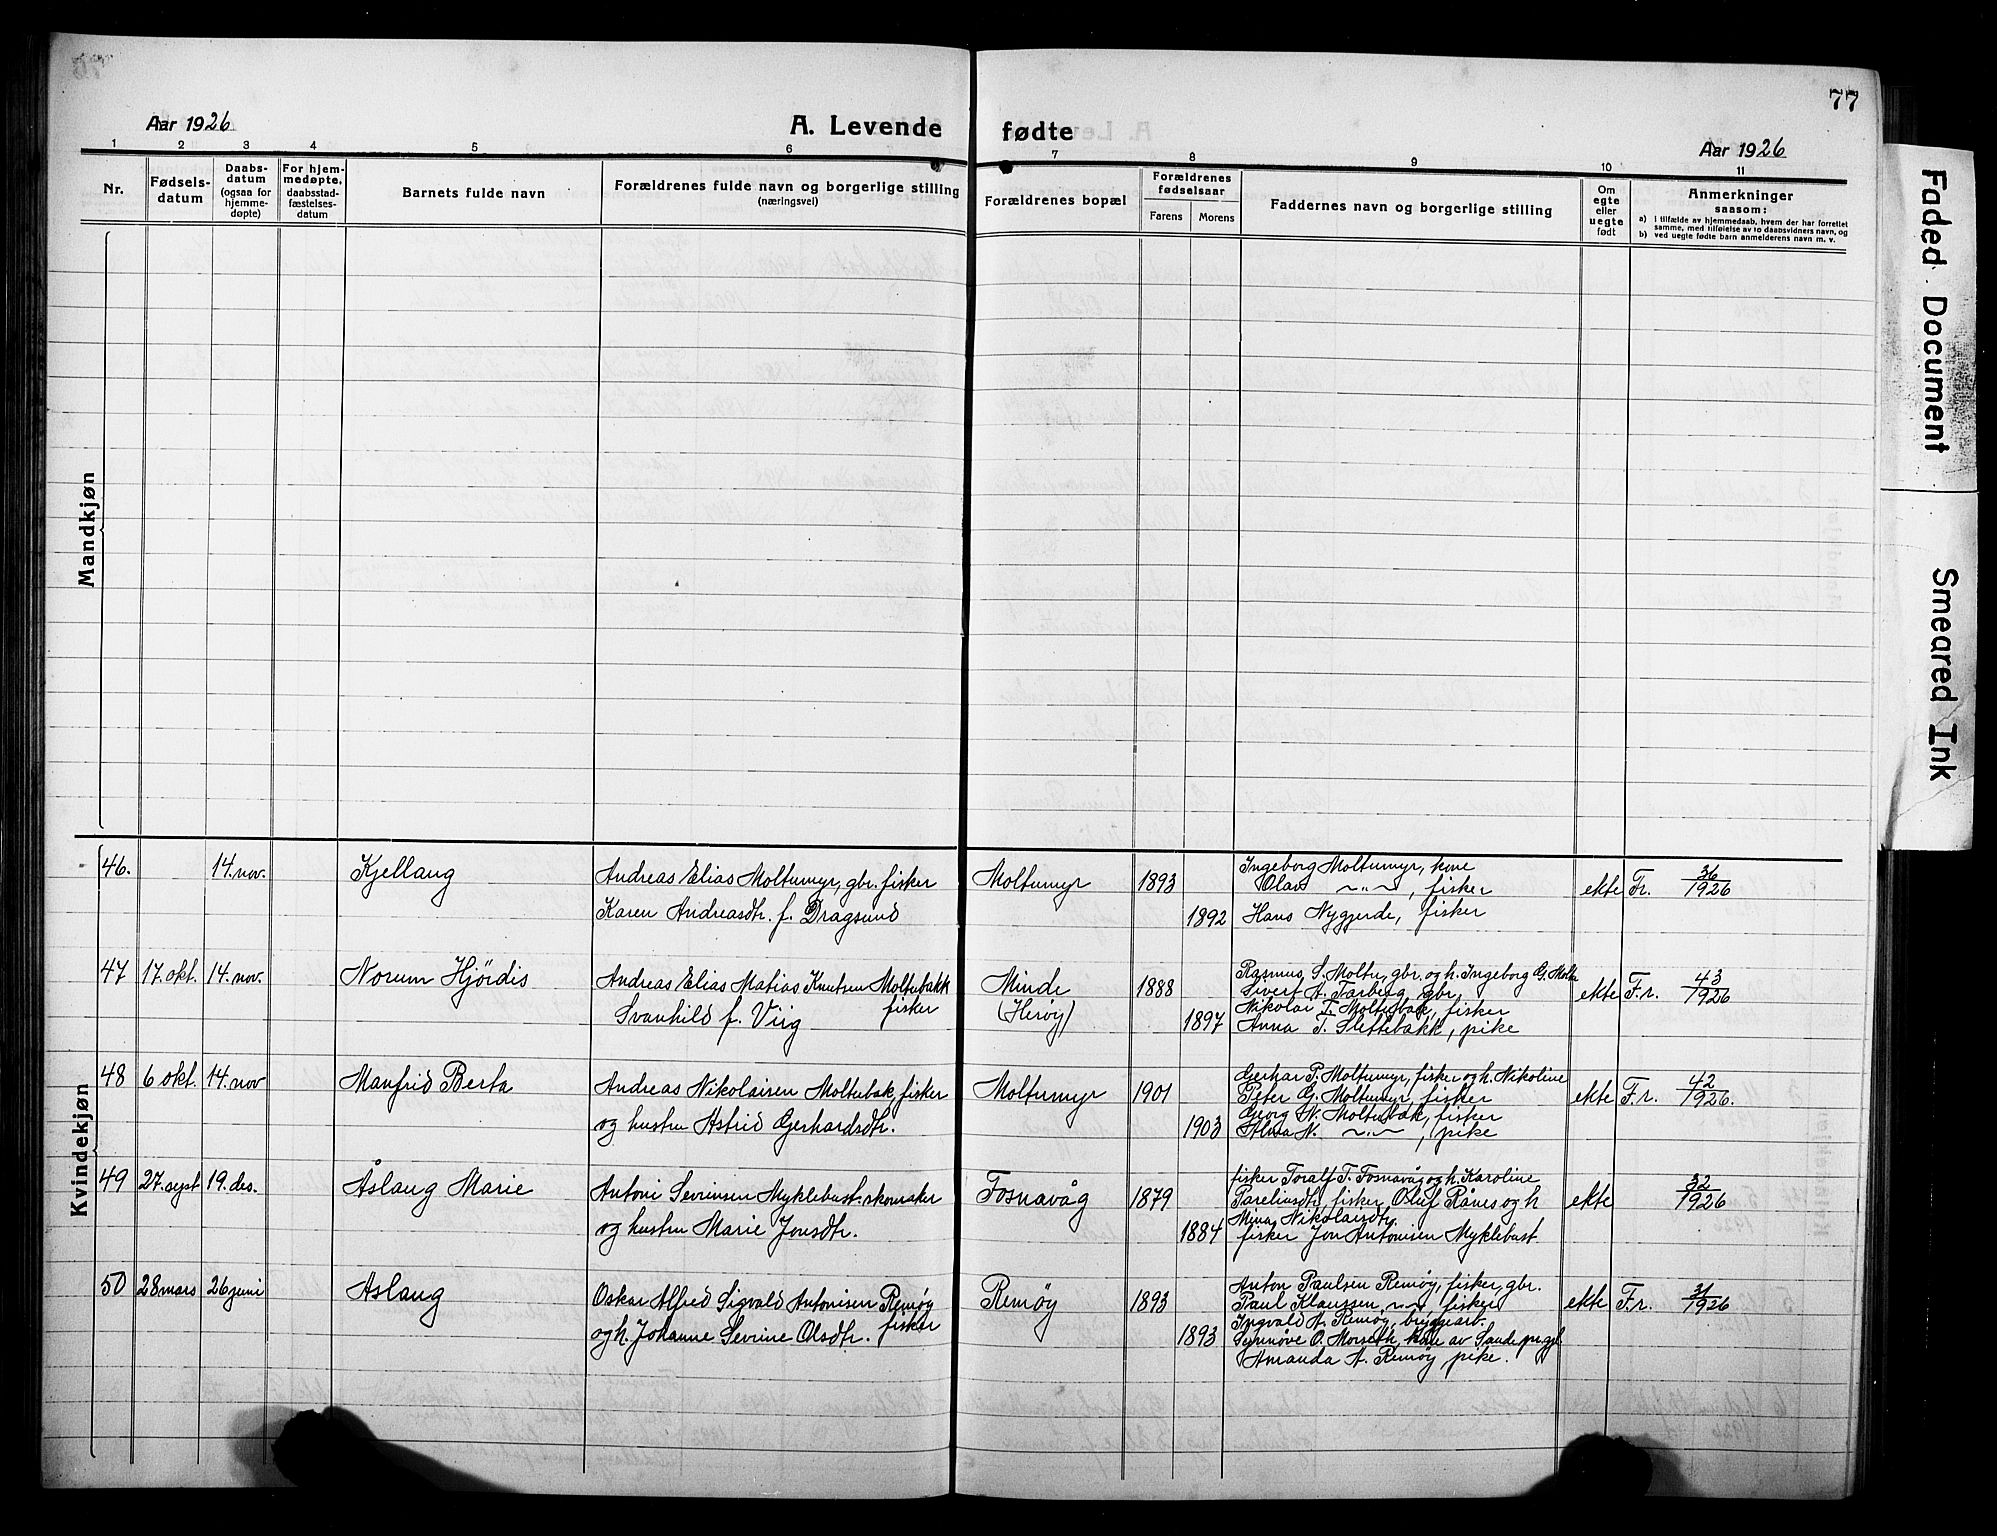 77
Aar 1926
A. Levende fødte
Aar 1926
1 2 3 4 5 6 7 8 9 10 11
Nr.
Fødsels-
datum
Daabs-
datum
(ogsaa for
hjemme-
døpte)
For hjem-
medøpte,
daabsstad-
fæstelses-
datum
Barnets fulde navn
Forældrenes fulde navn og borgerlige stilling
(næringsvei)
Forældrenes bopæl
Forældrenes
fødselsaar
Farens Morens
Faddernes navn og borgerlige stilling
Om
egte
eller
uegte
født
Anmerkninger
saasom:
a) i tilfælde av hjemmedaab, hvem der har forrettet
samme, med tilføielse av to daabsvidners navn, og
b) ved uegte fødte barn anmelderens navn m. v.
Mandkjøn
Kvindekjøn
46. 14. nov. Kjellaug
Andreas Elias Moltumyr, gbr. fisker
Karen Andreasdtr. f. Dragsund
Moltumyr 1893
1892
Ingeborg Moltumyr, kone
Olav ~"~, fisker
Hans Nygjerde, fisker
ekte Fr. 36/1926
47 17. okt. 14. nov. Norum Hjördis
Andreas Elias Matias Knutsen Moltubakk
fisker
Svanhild f. Viig
Minde
(Herøy)
1888
1897
Rasmus S. Moltu, gbr. og h. Ingeborg G. Moltu
Sivert A. Tarberg gbr.
Nikolai I. Moltubak, fisker
Anna T. Slettebakk, pike
ekte F.r. 43/1926
48 6 okt. 14. nov Manfrid Berta
Andreas Nikolaisen Moltubak, fisker
og hustru Astrid Gerhardsdtr.
Moltumyr 1901
1903
Gerhar P. Moltumyr, fisker og h. Nikoline
Peter G. Moltumyr, fisker
Georg N. Moltubak, fisker
Alma N. ~"~, pike
ekte F.r. 42/1926.
49 27. sept 19. des. Åslaug Marie
Antoni Sevrinsen Myklebust skomaker
og hustru Marie Jonsdtr.
Fosnavåg 1879
1884
fisker Toralf T. Fosnavåg og h. Karoline
Pareliusdtr, fisker Oluf Rånes og h
Mina Nikolaisdtr.
fisker Jon Antonisen Myklebust
ekte 32/1926
50 28 mars 26 juni Aslaug
Oskar Alfred Sigvald Antonisen Remøy
fisker
og h. Johanne Sevrine Olsdtr.
Remøy 1893
1893
Anton Paulsen Remøy, fisker, gbr.
Paul Klaussen, ~"~, fisker
Ingvald A. Remøy, bryggearb.
Synnøve O. Morseth, kone av Sande prgjl.
Amanda A. Remøy pike.
ekte F.r. 31/1926
Faded Document
Smeared Ink